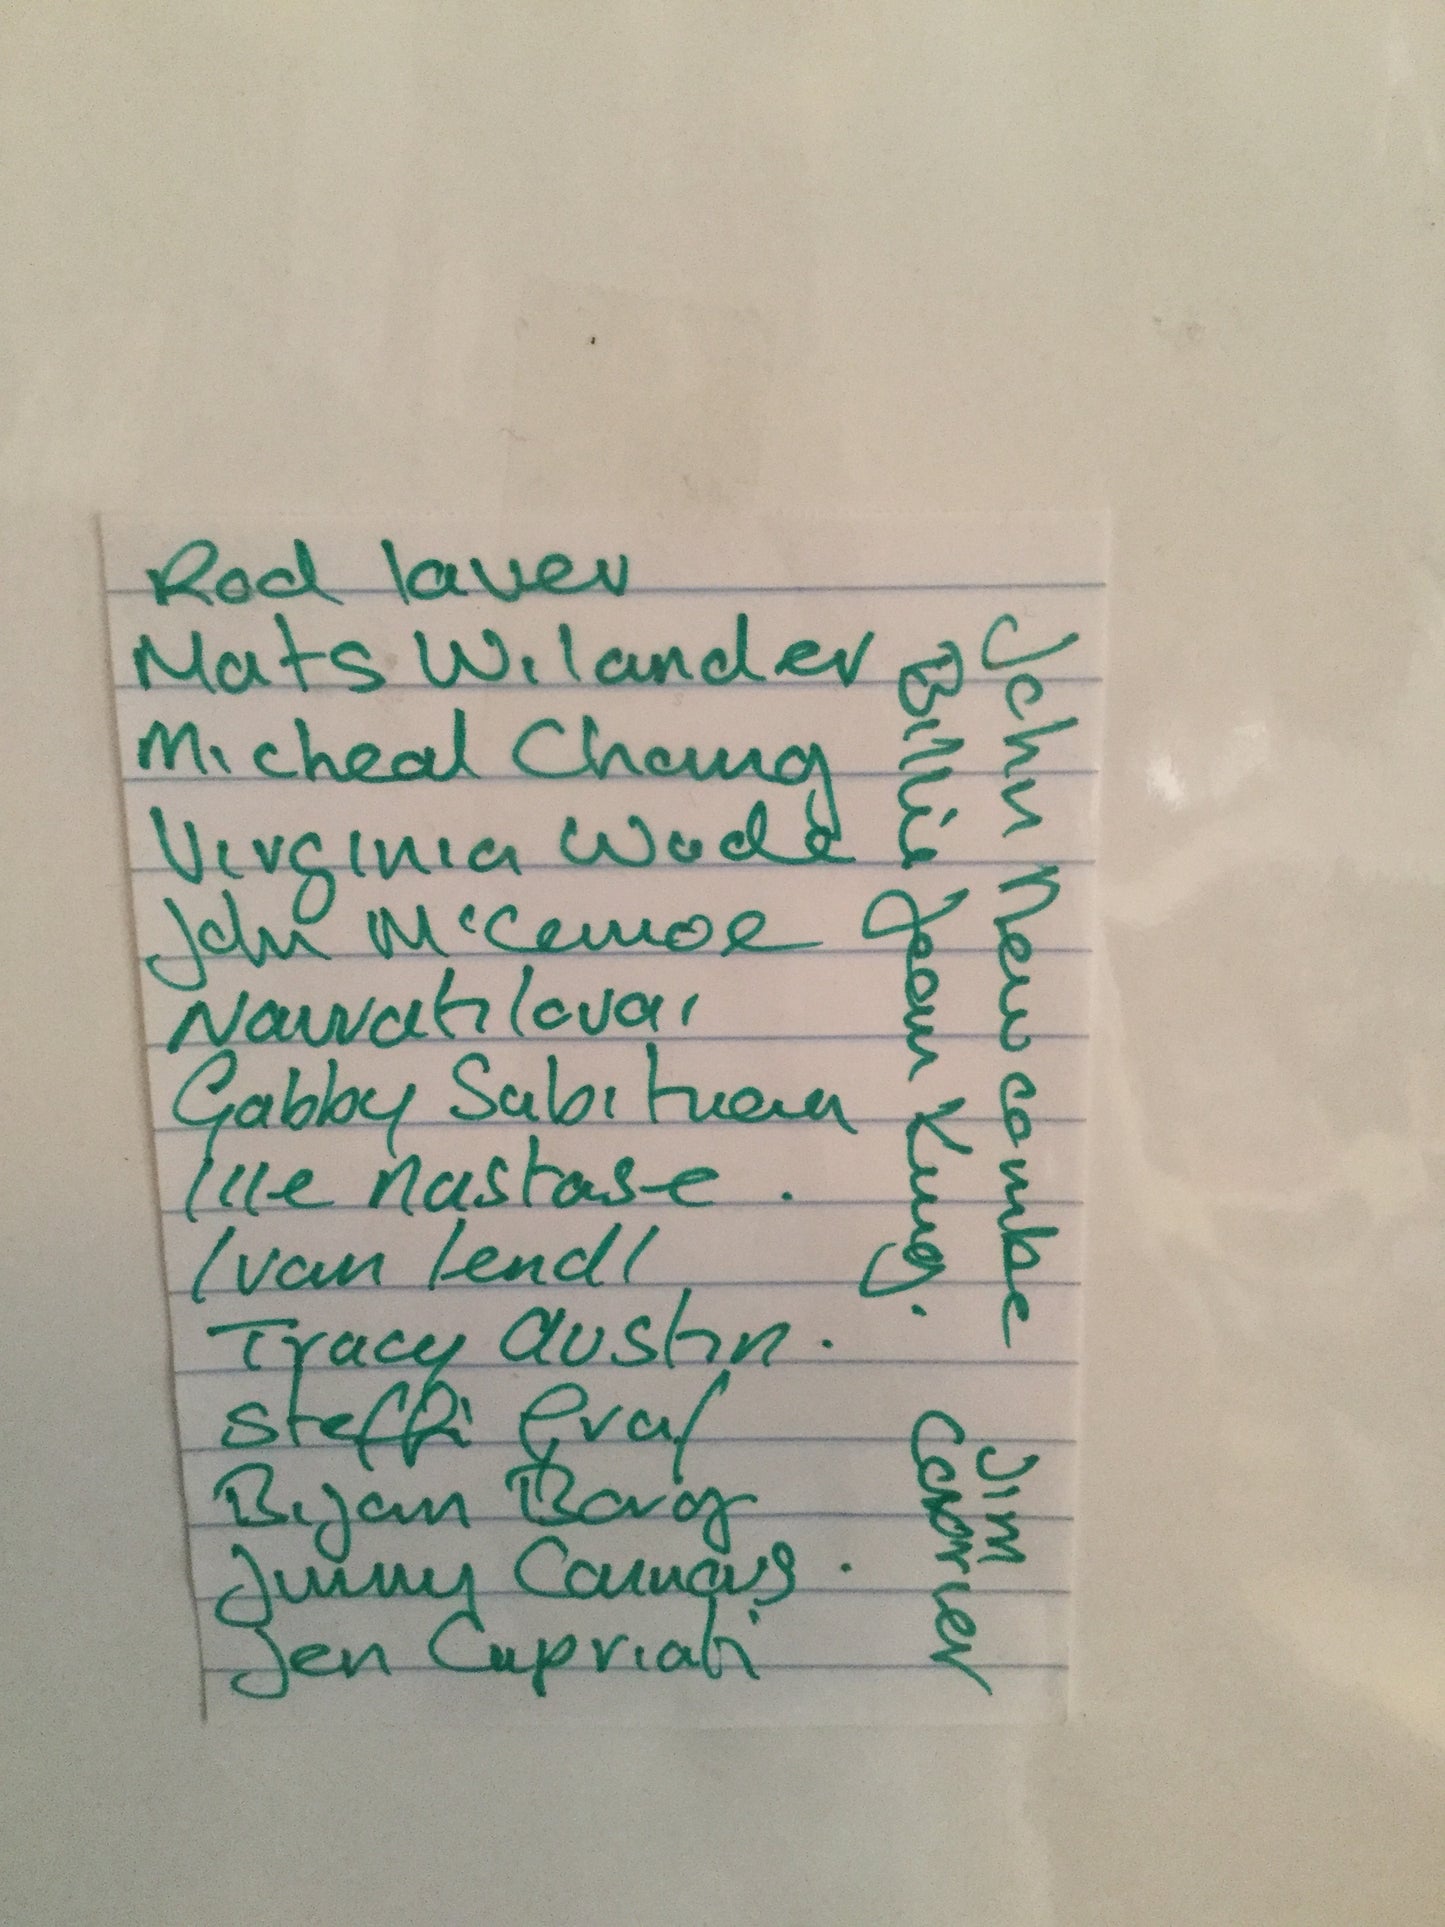 Rod laver
Mats Wilander
Micheal Chang
Virginia Wade
John McEnroe
Navratilova
Gabby Sabituan
Ille nastase .
Ivan lendl
Tracy austin .
Steffi Graf
Bijan Borg
Jimmy Connors .
Jen Capriati
John Newcombe
Billie Jean King .
Jim
Courier